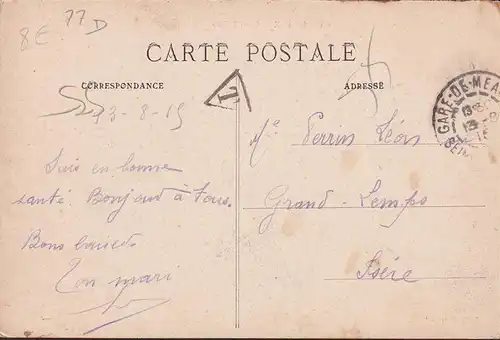 8E
77D
CARTE POSTALE
CORRESPONDANCE
ADRESSE
T
GARE-DE-MEA
13-8-15
Suis en bonne
santé. Bonjour à Tous.
Bons baisers
Ton mari
Perrin Léon
Grand-Lemps
Isère